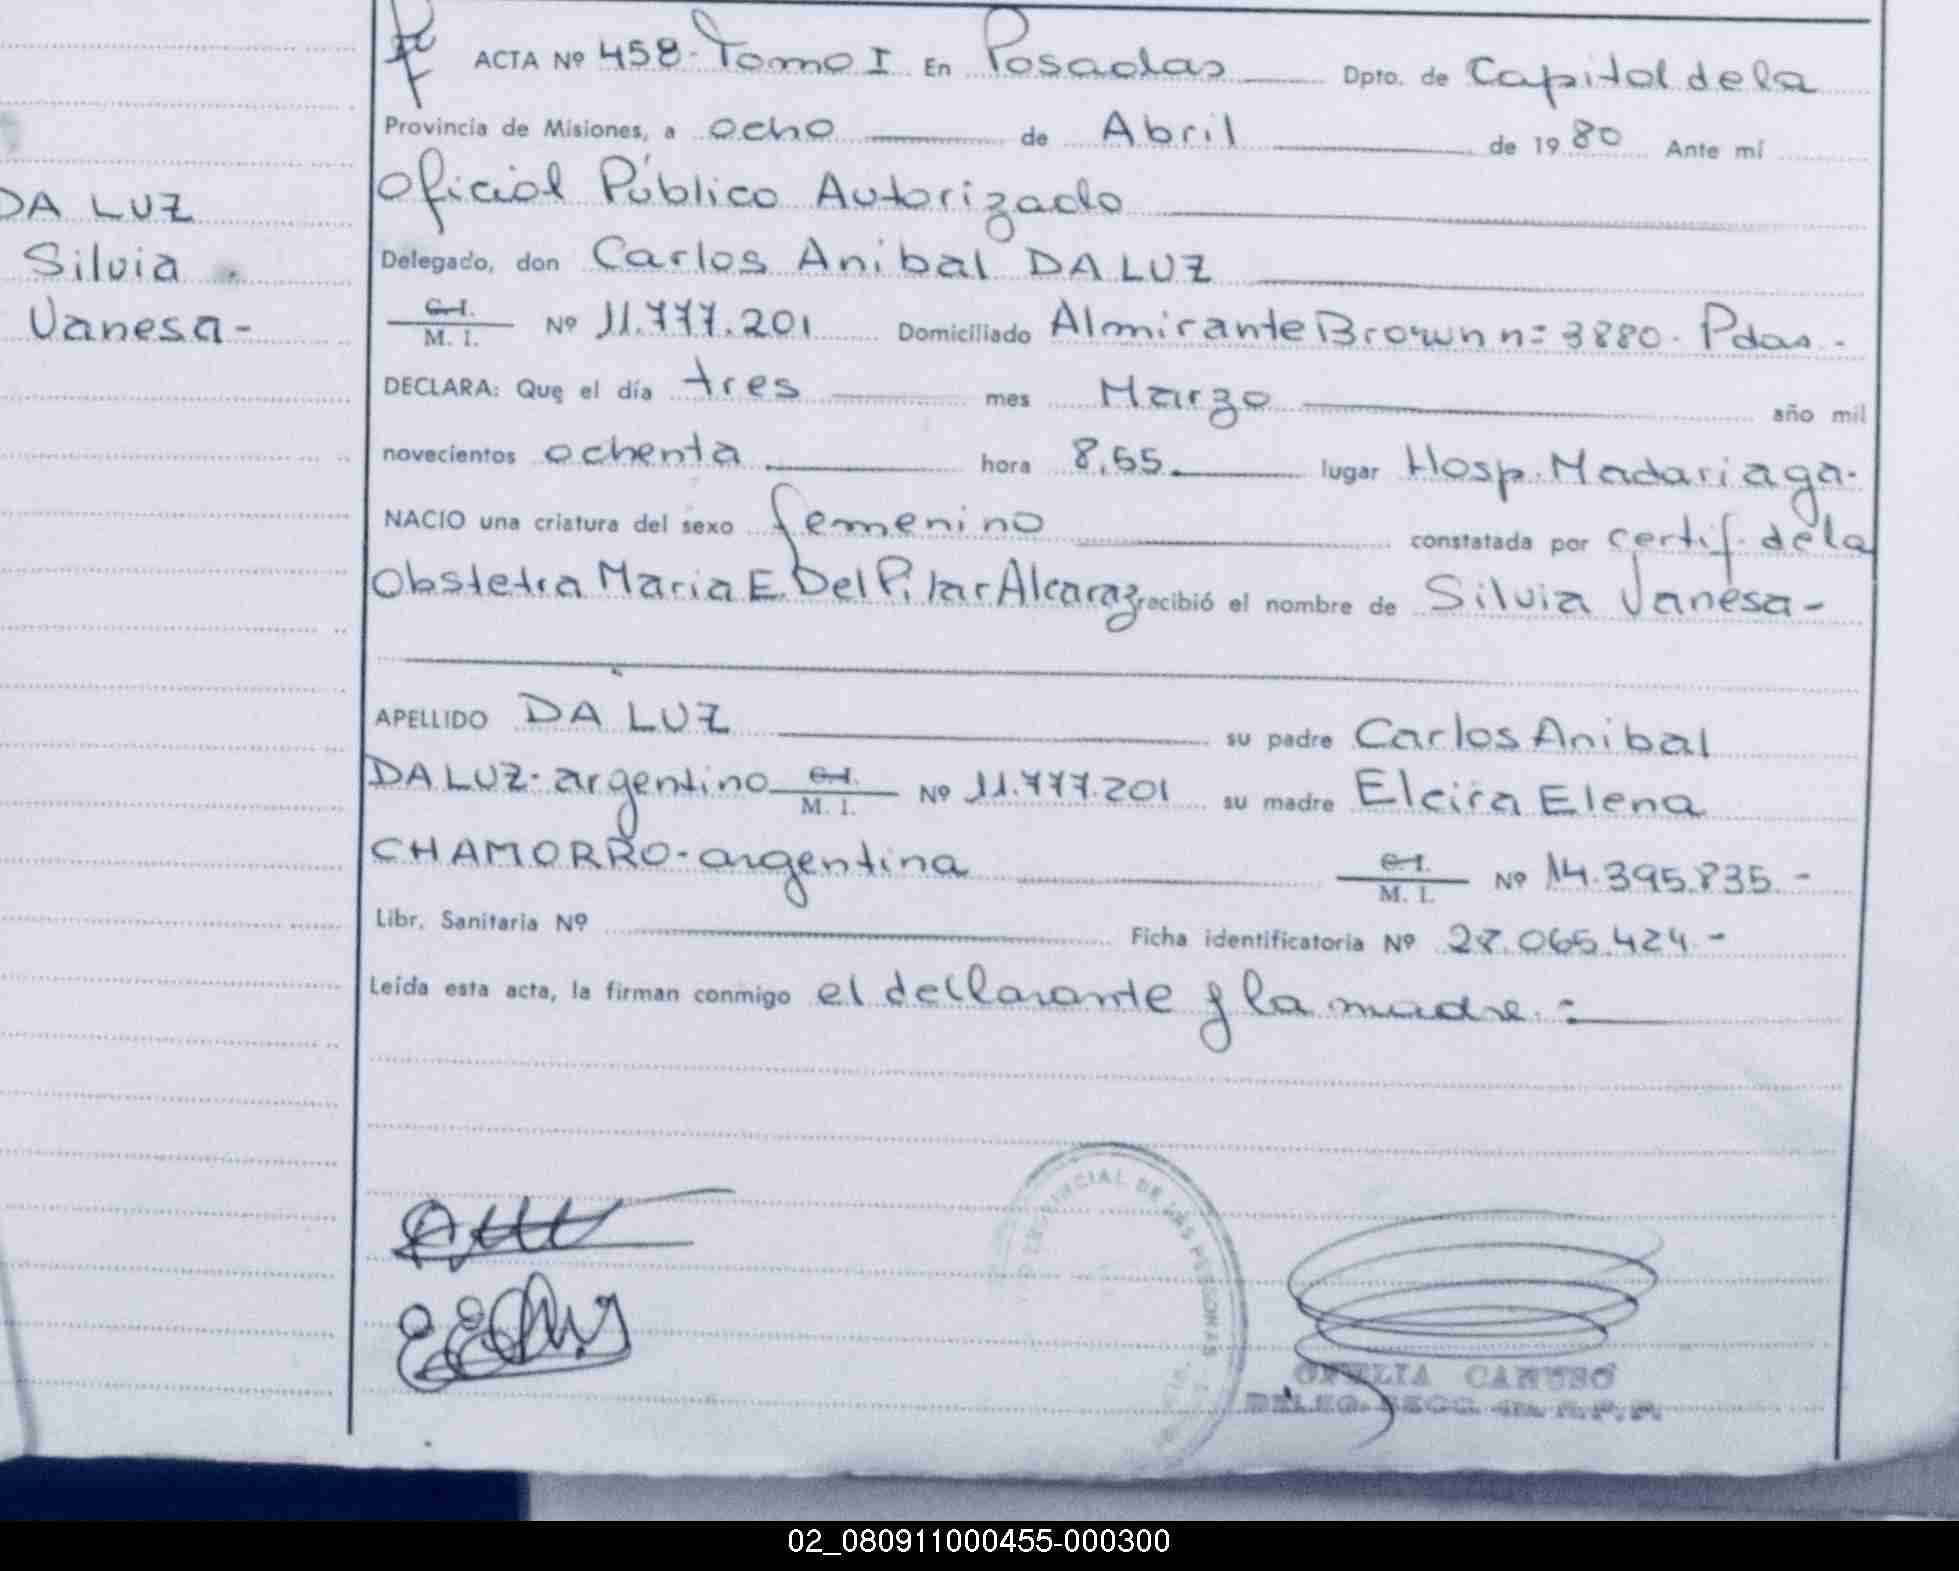 DA LUZ
Silvia
Vanesa-
ACTA Nº 458- Tomo I En Posadas Dpto. de Capital de la
Provincia de Misiones, a ocho de Abril de 1980 Ante mí
Oficial Público Autorizado
Delegado, don Carlos Anibal DA LUZ
C.I. M. I. Nº 11.777.201 Domiciliado Almirante Brown n= 3880. Pdas.-
DECLARA: Que el día tres mes Marzo año mil
novecientos ochenta hora 8,55 lugar Hosp. Madariaga.
NACIO una criatura del sexo femenino constatada por certif. de la
Obstetra Maria E. Del Pilar Alcaraz recibió el nombre de Silvia Vanesa-
APELLIDO DA LUZ su padre Carlos Anibal
DA LUZ- argentino C.I. M. I. Nº 11.777.201 su madre Elcira Elena
CHAMORRO- argentina C.I. M. I. Nº 14.395.835.-
Libr. Sanitaria Nº Ficha identificatoria Nº 28.065.424.-
Leída esta acta, la firman conmigo el declarante y la madre.=
PROVINCIAL DE LAS PERSONAS
OFELIA CARUSO
DELEG. SECC. 4ta. R.P.P.
02_080911000455-000300